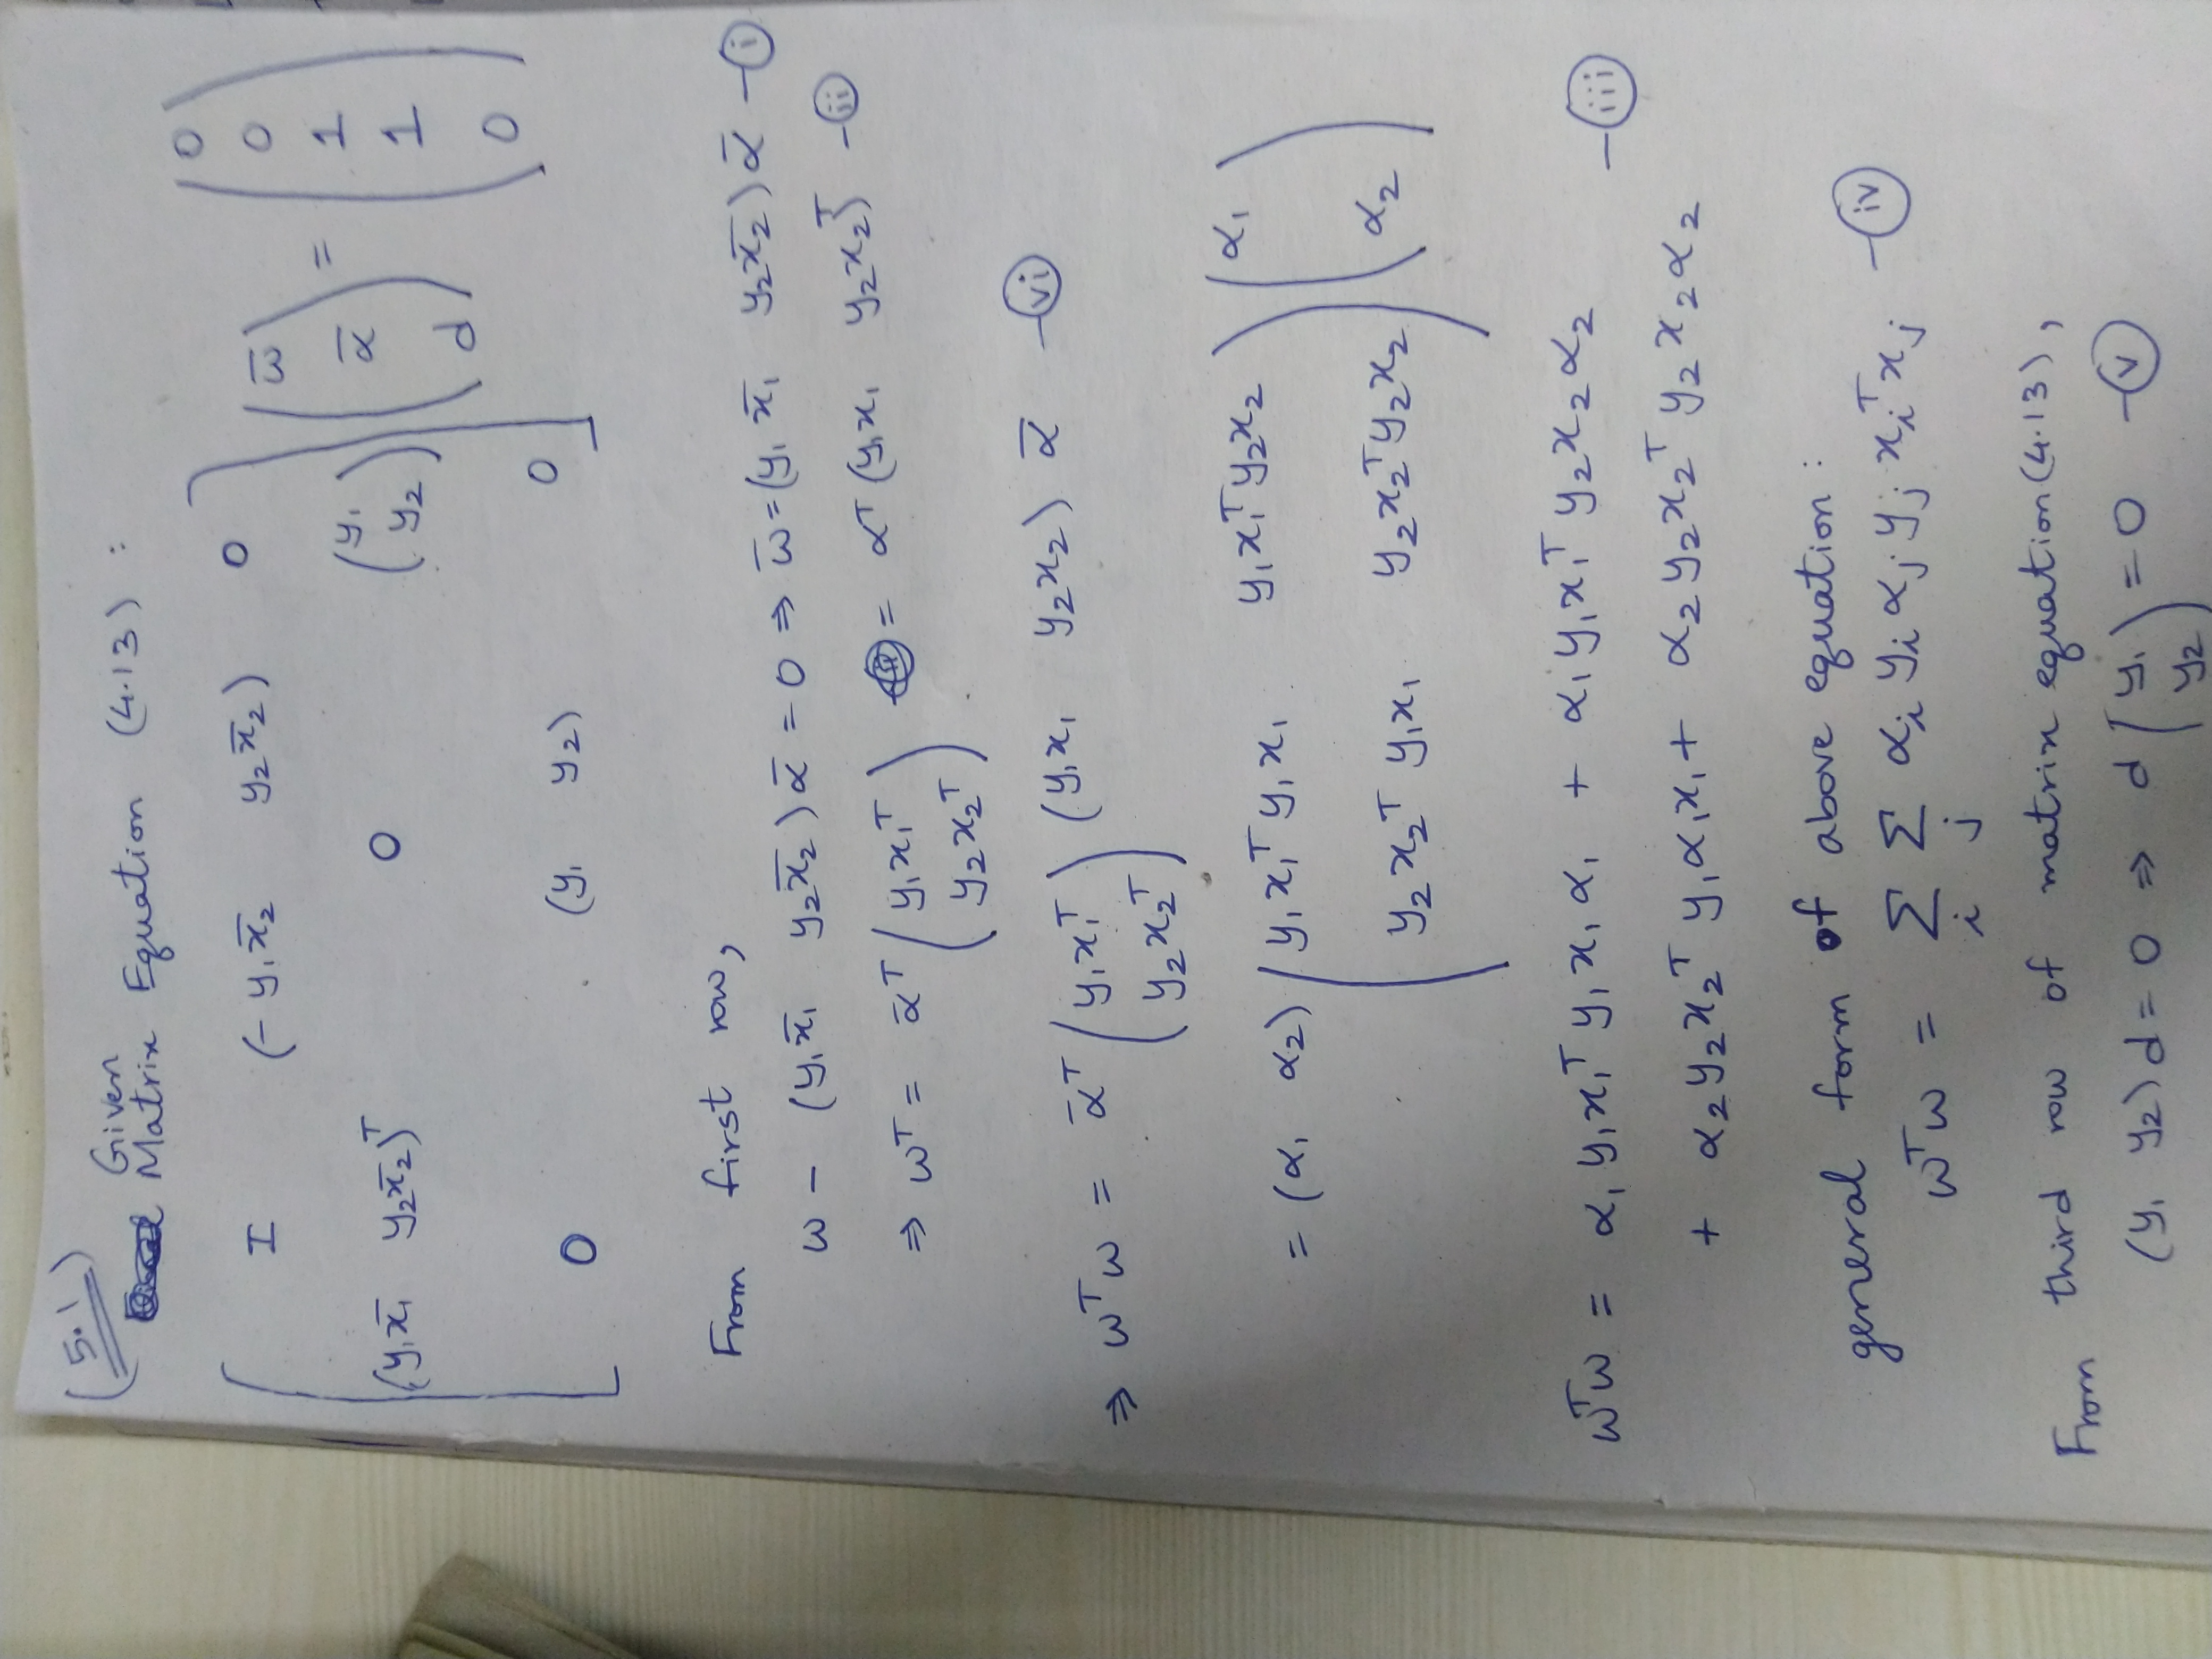 (5.1)
Given
Matrix Equation (4.13) :
[ I (- y₁x̄₂ y₂x̄₂) 0 ] ( ω̄ ) = ( 0 )
( 0 )
[ (y₁x̄₁ y₂x̄₂)ᵀ 0 ( y₁ y₂ ) ] ( ᾱ ) ( 1 )
( 1 )
[ 0 (y₁ y₂) 0 ] ( d ) ( 0 )
From first row,
ω - (y₁x̄₁ y₂x̄₂) ᾱ = 0 ⇒ ω̄ = (y₁ x̄₁ y₂x̄₂) ᾱ - (i)
⇒ ωᵀ = ᾱᵀ ( y₁x₁ᵀ y₂x₂ᵀ ) = αᵀ (y₁x₁ y₂x₂)ᵀ - (ii)
⇒ ωᵀω = ᾱᵀ ( y₁x₁ᵀ y₂x₂ᵀ ) (y₁x₁ y₂x₂) ᾱ - (vi)
= (α₁ α₂) ( y₁x₁ᵀy₁x₁ y₁x₁ᵀy₂x₂ ) ( α₁ )
( y₂x₂ᵀ y₁x₁ y₂x₂ᵀy₂x₂ ) ( α₂ )
ωᵀω = α₁ y₁x₁ᵀ y₁x₁α₁ + α₁y₁x₁ᵀ y₂x₂α₂ - (iii)
+ α₂y₂x₂ᵀ y₁α₁x₁ + α₂y₂x₂ᵀ y₂x₂α₂
general form of above equation :
ωᵀω = Σᵢ Σⱼ αᵢ yᵢ αⱼ yⱼ xᵢᵀxⱼ - (iv)
From third row of matrix equation (4.13) ,
(y₁ y₂) d = 0 ⇒ d ( y₁ y₂ ) = 0 - (v)